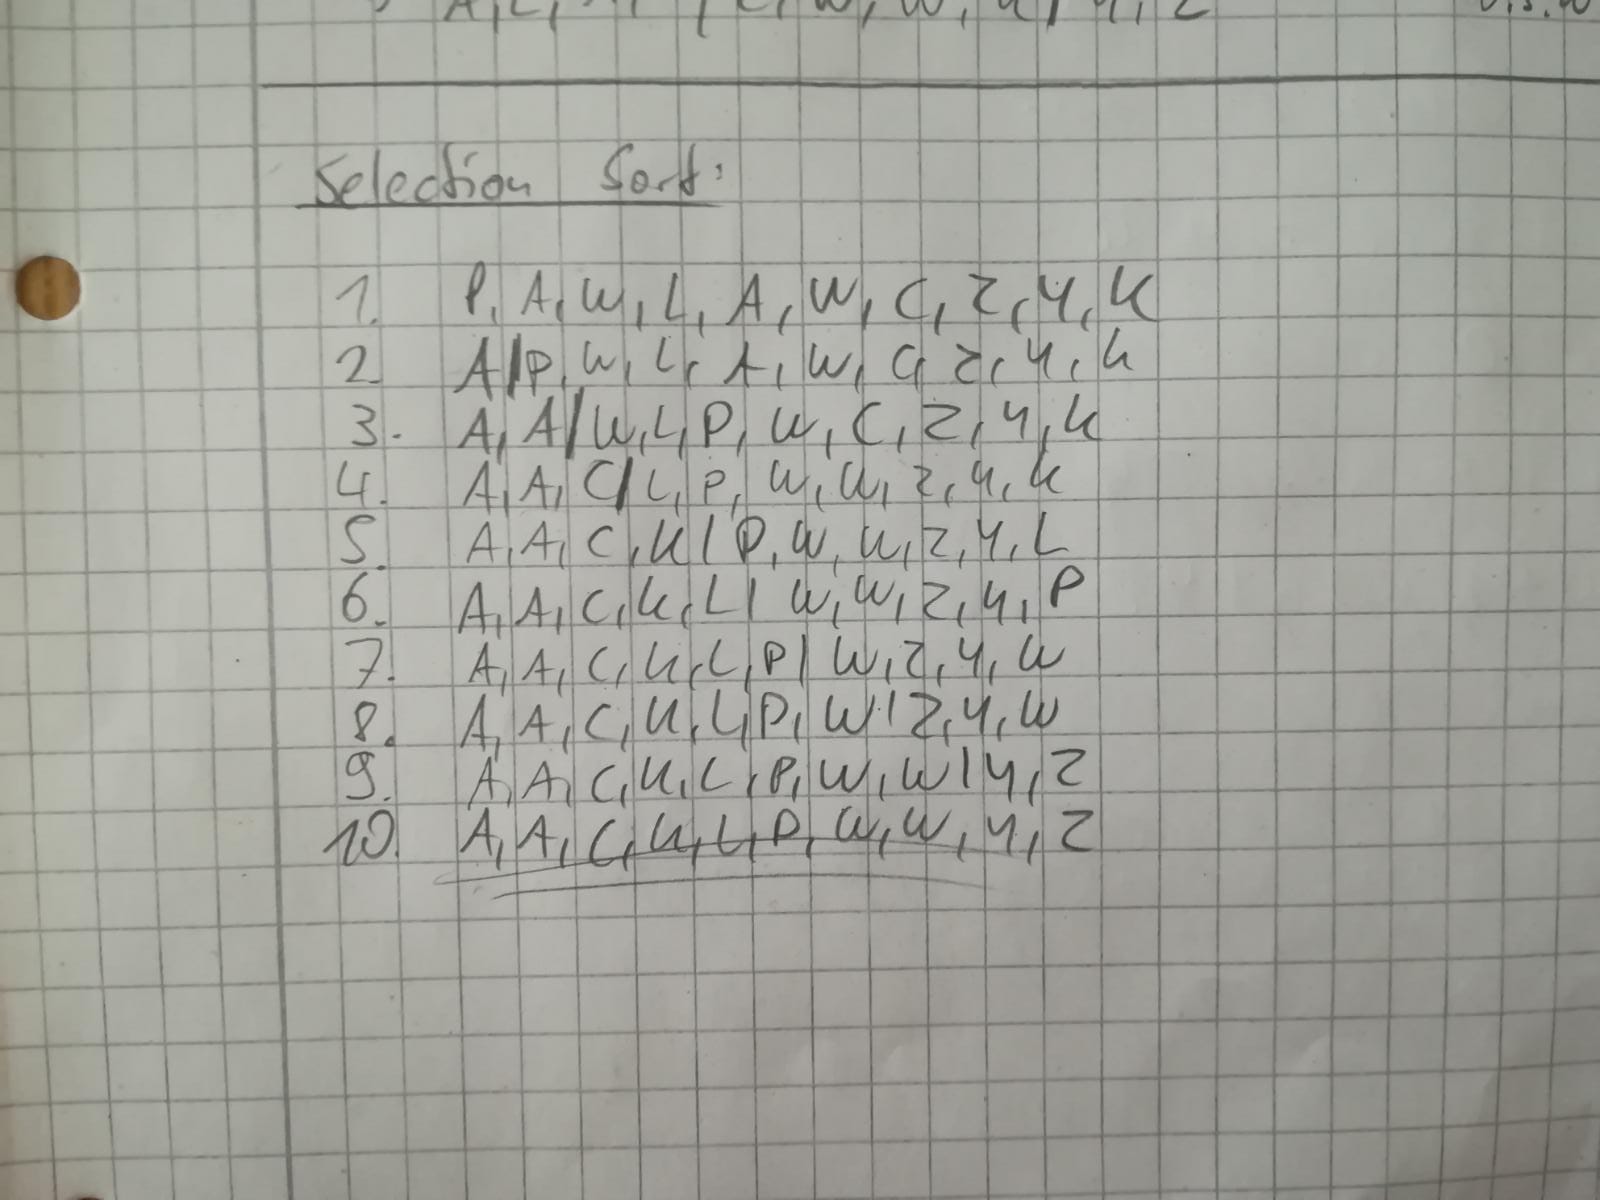 Selection Sort:
1. P, A, W, L, A, W, C, Z, Y, K
2. A|P, W, L, A, W, C, Z, Y, K
3. A, A|W, L, P, W, C, Z, Y, K
4. A, A, C|L, P, W, W, Z, Y, K
5. A, A, C, K|P, W, W, Z, Y, L
6. A, A, C, K, L|W, W, Z, Y, P
7. A, A, C, K, L, P|W, Z, Y, W
8. A, A, C, K, L, P, W|Z, Y, W
9. A, A, C, K, L, P, W, W|Y, Z
10. A, A, C, K, L, P, W, W, Y, Z